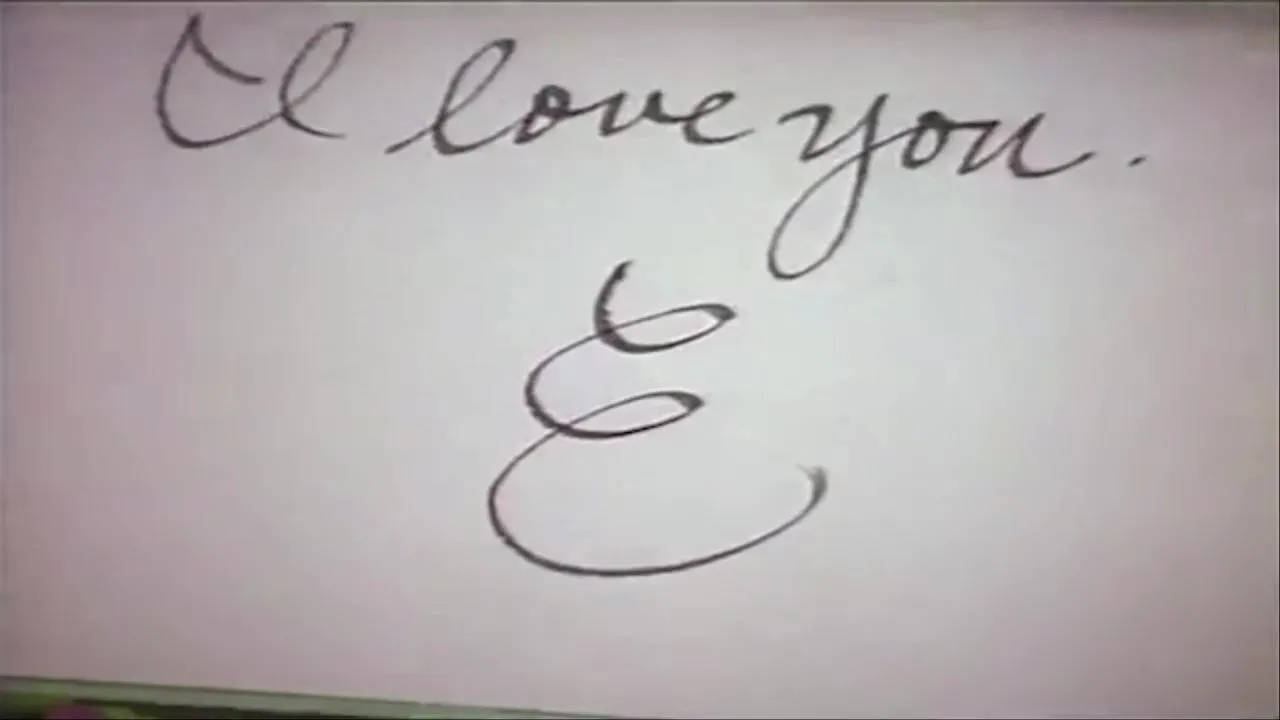 I love you.
E